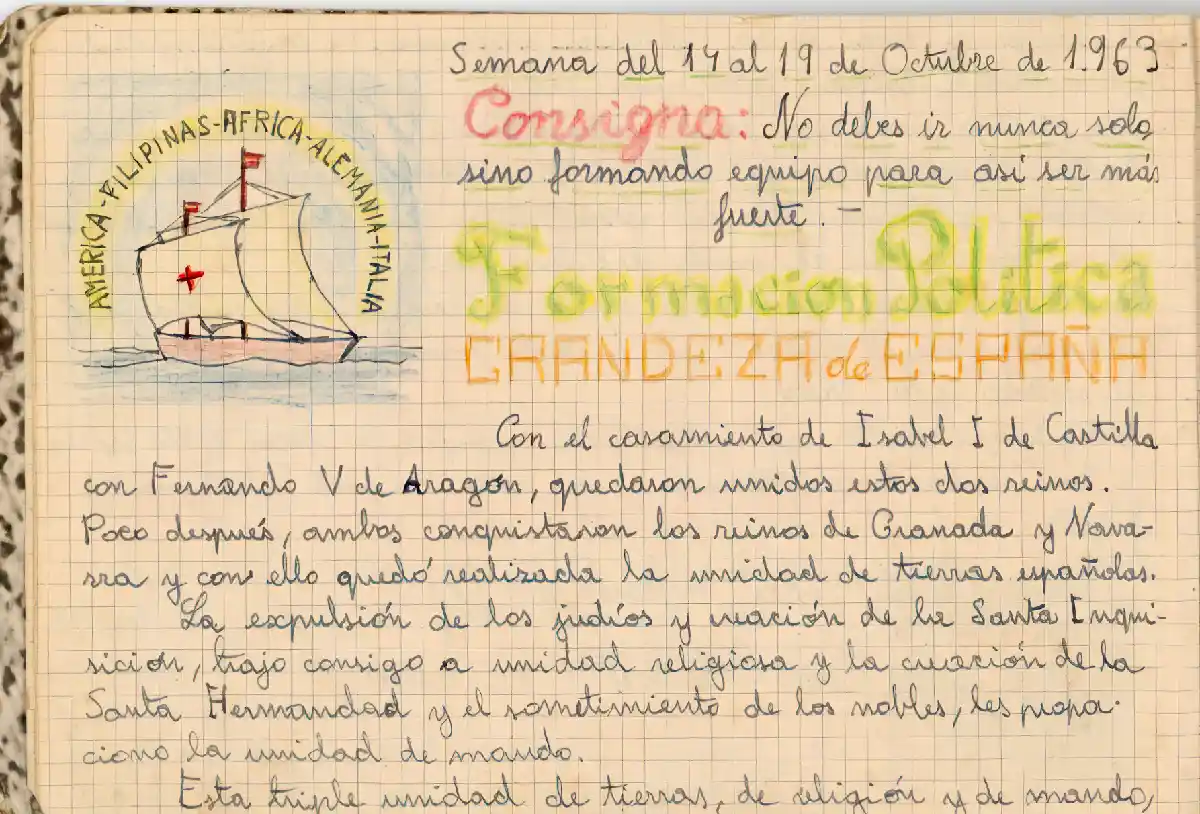 Semana del 14 al 19 de Octubre de 1.963
AMERICA-FILIPINAS-AFRICA-ALEMANIA-ITALIA
Consigna: No debes ir nunca solo,
sino formando equipo para así ser más
fuerte. -
Formacion Politica
GRANDEZA de ESPAÑA
Con el casamiento de Isabel I de Castilla
con Fernando V de Aragón, quedaron unidos estos dos reinos.
Poco después, ambos conquistaron los reinos de Granada y Nava-
rra y con ello quedó realizada la unidad de tierras españolas.
La expulsión de los judíos y creación de la Santa Inqui-
sición, trajo consigo a unidad religiosa y la creación de la
Santa Hermandad y el sometimiento de los nobles, les propor-
ciono la unidad de mando.
Esta triple unidad de tierras, de religión y de mando,